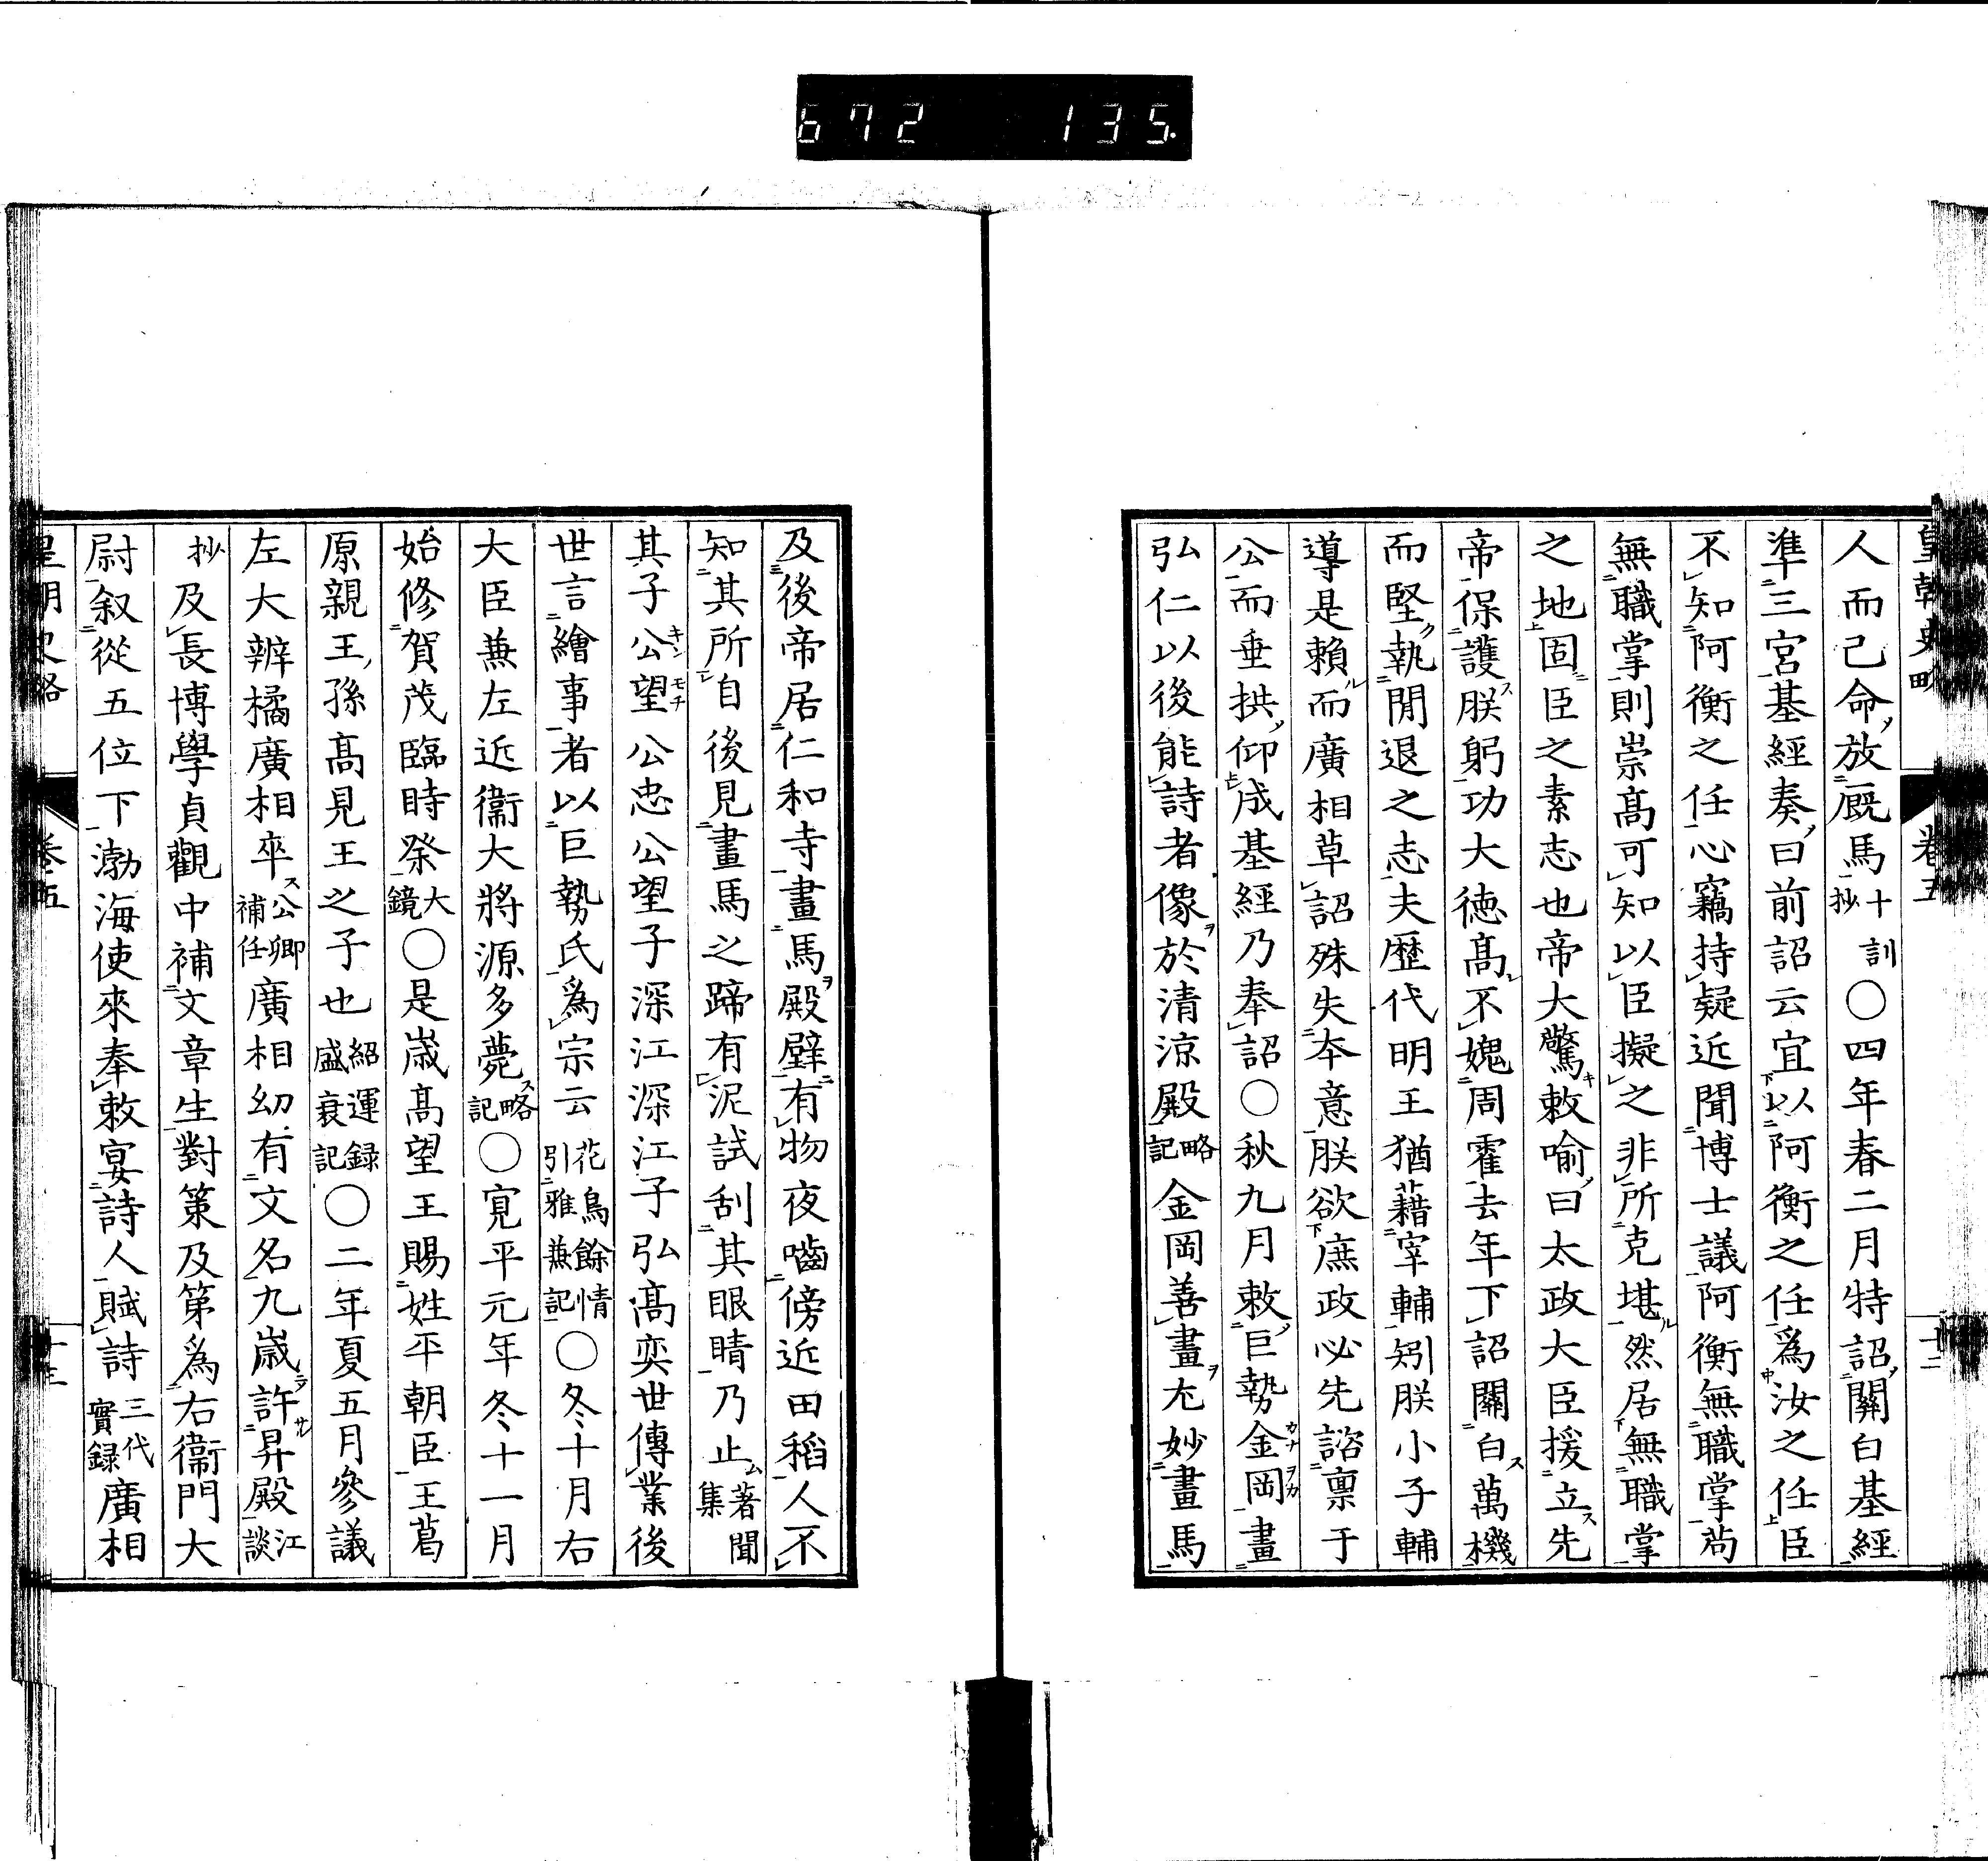 672 135.
皇朝史略 卷五 十二
人而已命放厩馬十訓抄〇四年春二月特詔關白基經
準三宮基經奏曰前詔云宜以阿衡之任爲汝之任臣
不知阿衡之任心竊持疑近聞博士議阿衡無職掌苟
無職掌則崇髙可知以臣擬之非所克堪然居無職掌
之地固臣之素志也帝大驚敕喻曰太政大臣援立先
帝保護朕躬功大徳髙不媿周霍去年下詔關白萬機
而堅執閒退之志夫歷代明王猶藉宰輔矧朕小子輔
導是賴而廣相草詔殊失夲意朕欲庶政必先諮禀于
公而垂拱仰成基經乃奉詔〇秋九月敕巨勢金岡畫
弘仁以後能詩者像於清涼殿略記金岡善畫尤妙畫馬
及後帝居仁和寺畫馬殿壁有物夜嚙傍近田稻人不
知其所自後見畫馬之蹄有泥試刮其眼睛乃止著聞集
其子公望公忠公望子深江深江子弘髙奕世傳業後
世言繪事者以巨勢氏爲宗云花鳥餘情引雅兼記〇冬十月右
大臣兼左近衞大將源多薨略記〇寛平元年冬十一月
始修賀茂臨時祭大鏡〇是歳髙望王賜姓平朝臣王葛
原親王孫髙見王之子也紹運録盛衰記〇二年夏五月參議
左大辨橘廣相卒公卿補任廣相幼有文名九歳許昇殿江談
抄及長博學貞觀中補文章生對策及第爲右衞門大
尉叙從五位下渤海使來奉敕宴詩人賦詩三代實録廣相
皇朝史略 卷五 十三